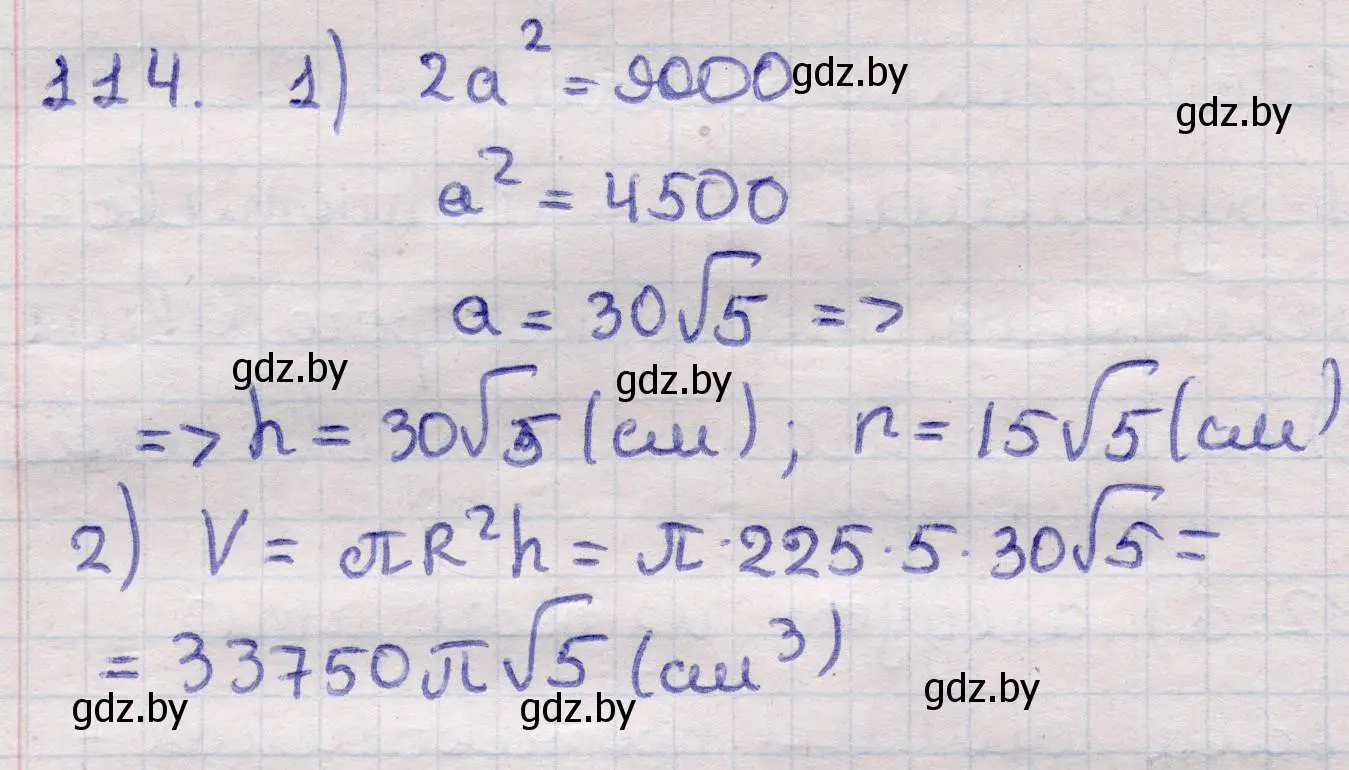 114. 1) 2a² = 9000 gdz.by
gdz.by
a² = 4500
a = 30√5 =>
gdz.by gdz.by
=> h = 30√5 (см); r = 15√5 (см)
2) V = πR²h = π·225·5·30√5 =
= 33750π√5 (см³)
gdz.by gdz.by gdz.by